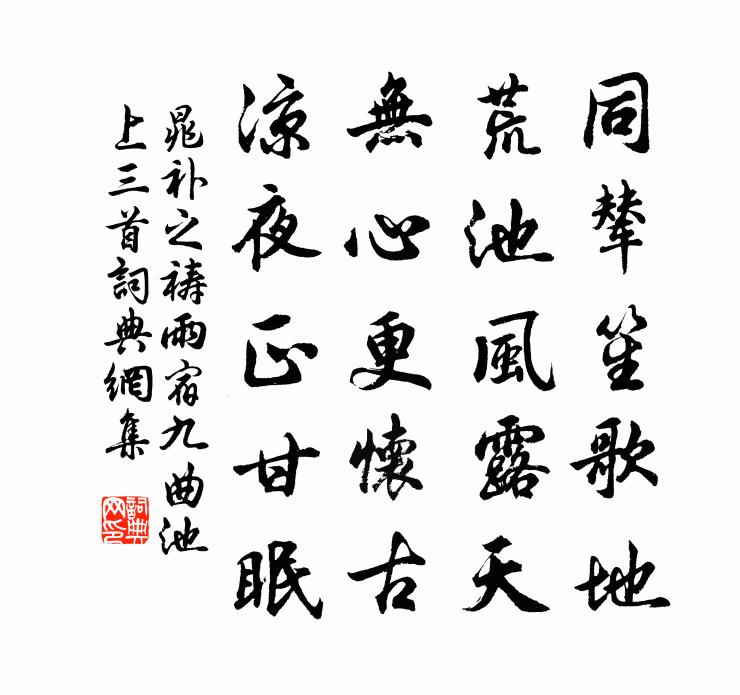 同輦笙歌地
荒池風露天
無心更懷古
涼夜正甘眠
晁补之禱雨宿九曲池
上三首詞典網集
詞典
网印